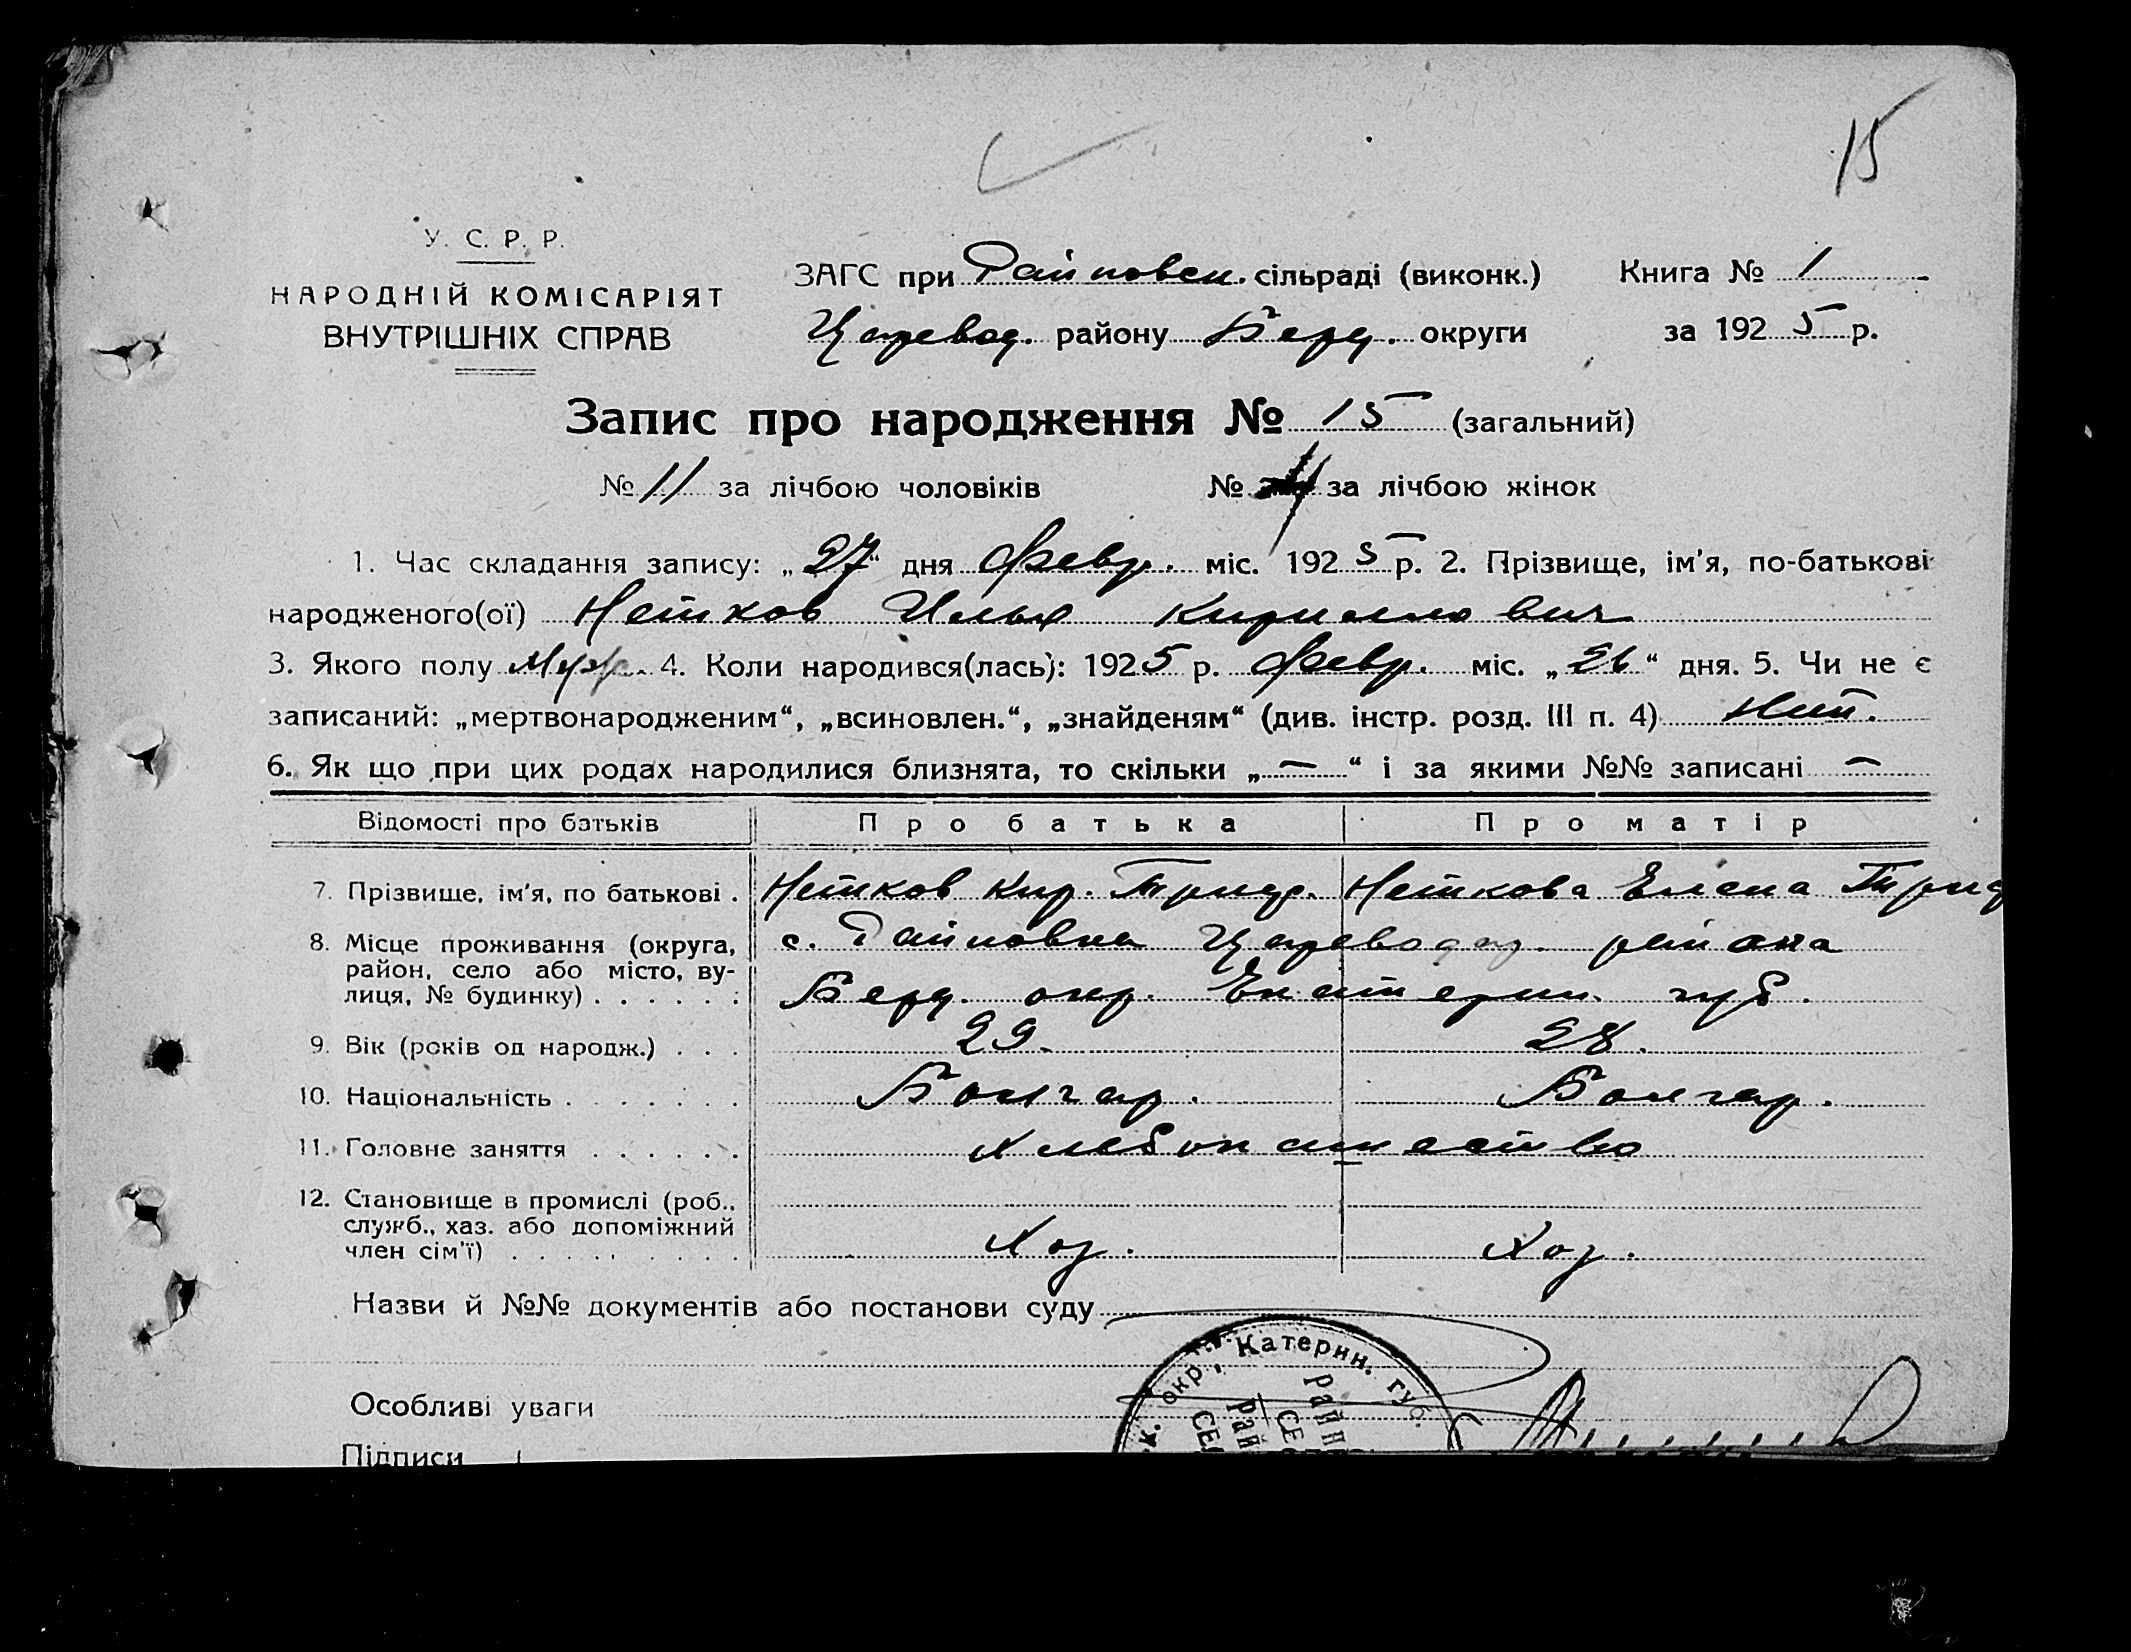 15
У. С. Р. Р.
НАРОДНІЙ КОМІСАРІЯТ
ВНУТРІШНІХ СПРАВ
ЗАГС при Райновск. сільраді (виконк.) Книга № 1
Царевод. району Берд. округи за 1925 р.
Запис про народження № 15 (загальний)
№ 11 за лічбою чоловіків № за лічбою жінок
1. Час складання запису: „27“ дня Февр. міс. 1925 р. 2. Прізвище, ім'я, по-батькові
народженого(ої) Нейков Илья Кириллович
3. Якого полу Муж. 4. Коли народився(лась): 1925 р. Февр. міс. „26“ дня. 5. Чи не є
записаний: „мертвонародженим“, „всиновлен.“, „знайденям“ (див. інстр. розд. III п. 4)
6. Як що при цих родах народилися близнята, то скільки „—“ і за якими №№ записані —
Відомості про батьків Про батька Про матір
7. Прізвище, ім'я, по батькові . Нейков Кир. Нейкова Елена
8. Місце проживання (округа, с. Райновка Царевод. района
район, село або місто, ву-
лиця, № будинку) . . . . . . Берд. окр. Екатерин. губ.
9. Вік (років од народж.) . . . 29. 28.
10. Національність . . . . . . . Болгар. Болгар.
11. Головне заняття . . . . . . Хлебопашество
12. Становище в промислі (роб.,
служб., хаз. або допоміжний
член сім'ї) . . . . . . . . . Хоз. Хоз.
Назви й №№ документів або постанови суду
окр., Катерин. губ.
Особливі уваги
Підписи